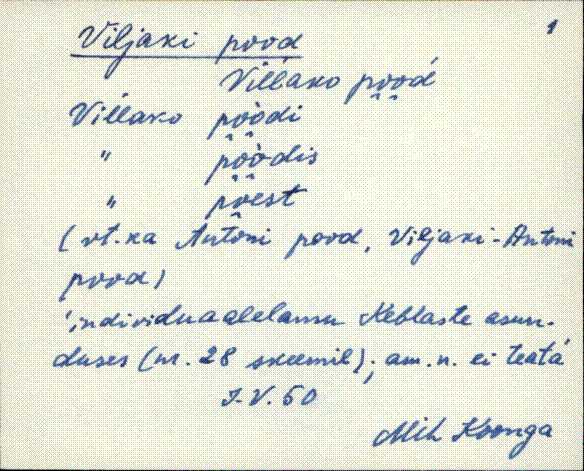 1
Viljaki pood
Villako pood
Villako poodi
" poodis
" poest
(vt. ka Antoni pood, Viljaki-Antoni
pood)
individuaalelamu Keblaste asun-
duses (nr. 28 skeemil); am. n. ei teata
I. V. 50
Mih Koonga